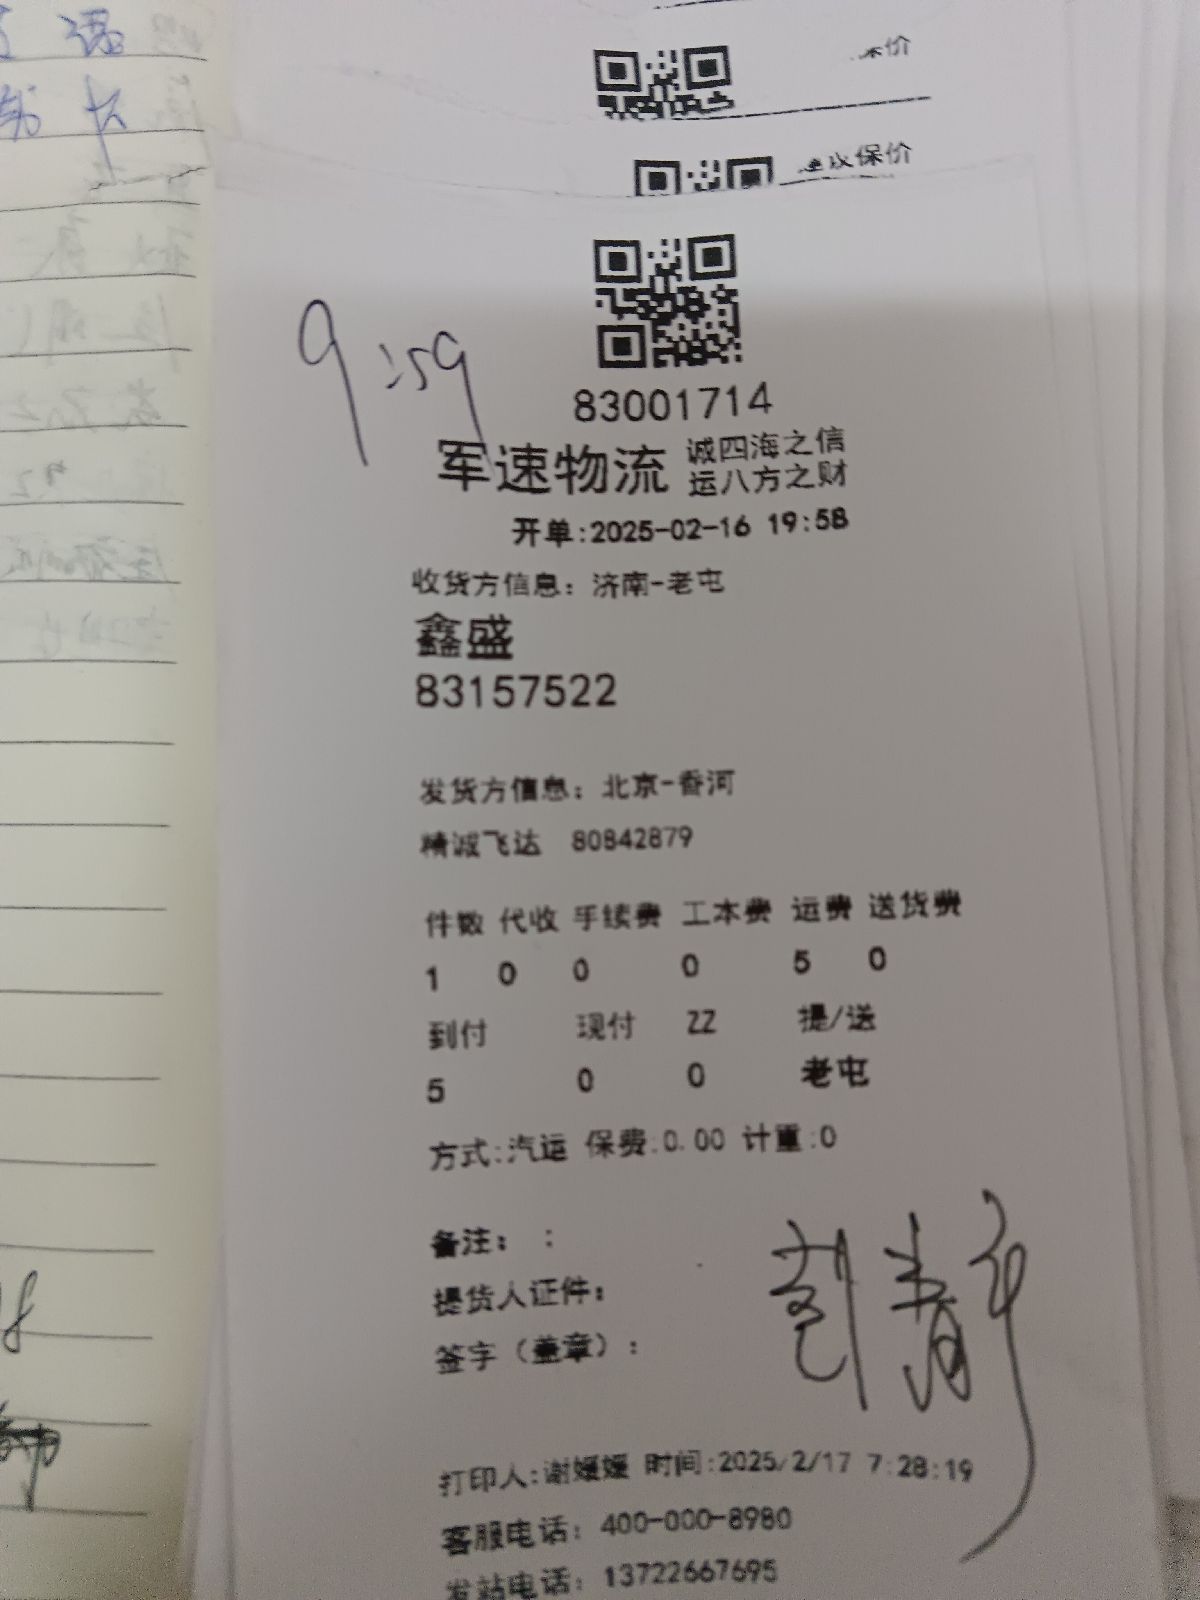 保价
建议保价
9:59
83001714
军速物流 诚四海之信
运八方之财
开单:2025-02-16 19:58
收货方信息：济南-老屯
鑫盛
83157522
发货方信息：北京-香河
精诚飞达 80842879
件数 代收 手续费 工本费 运费 送货费
1 0 0 0 5 0
到付 现付 ZZ 提/送
5 0 0 老屯
方式:汽运 保费:0.00 计重:0
备注： ：
提货人证件：
签字（盖章）：
打印人:谢媛媛 时间:2025/2/17 7:28:19
客服电话：400-000-8980
发站电话：13722667695